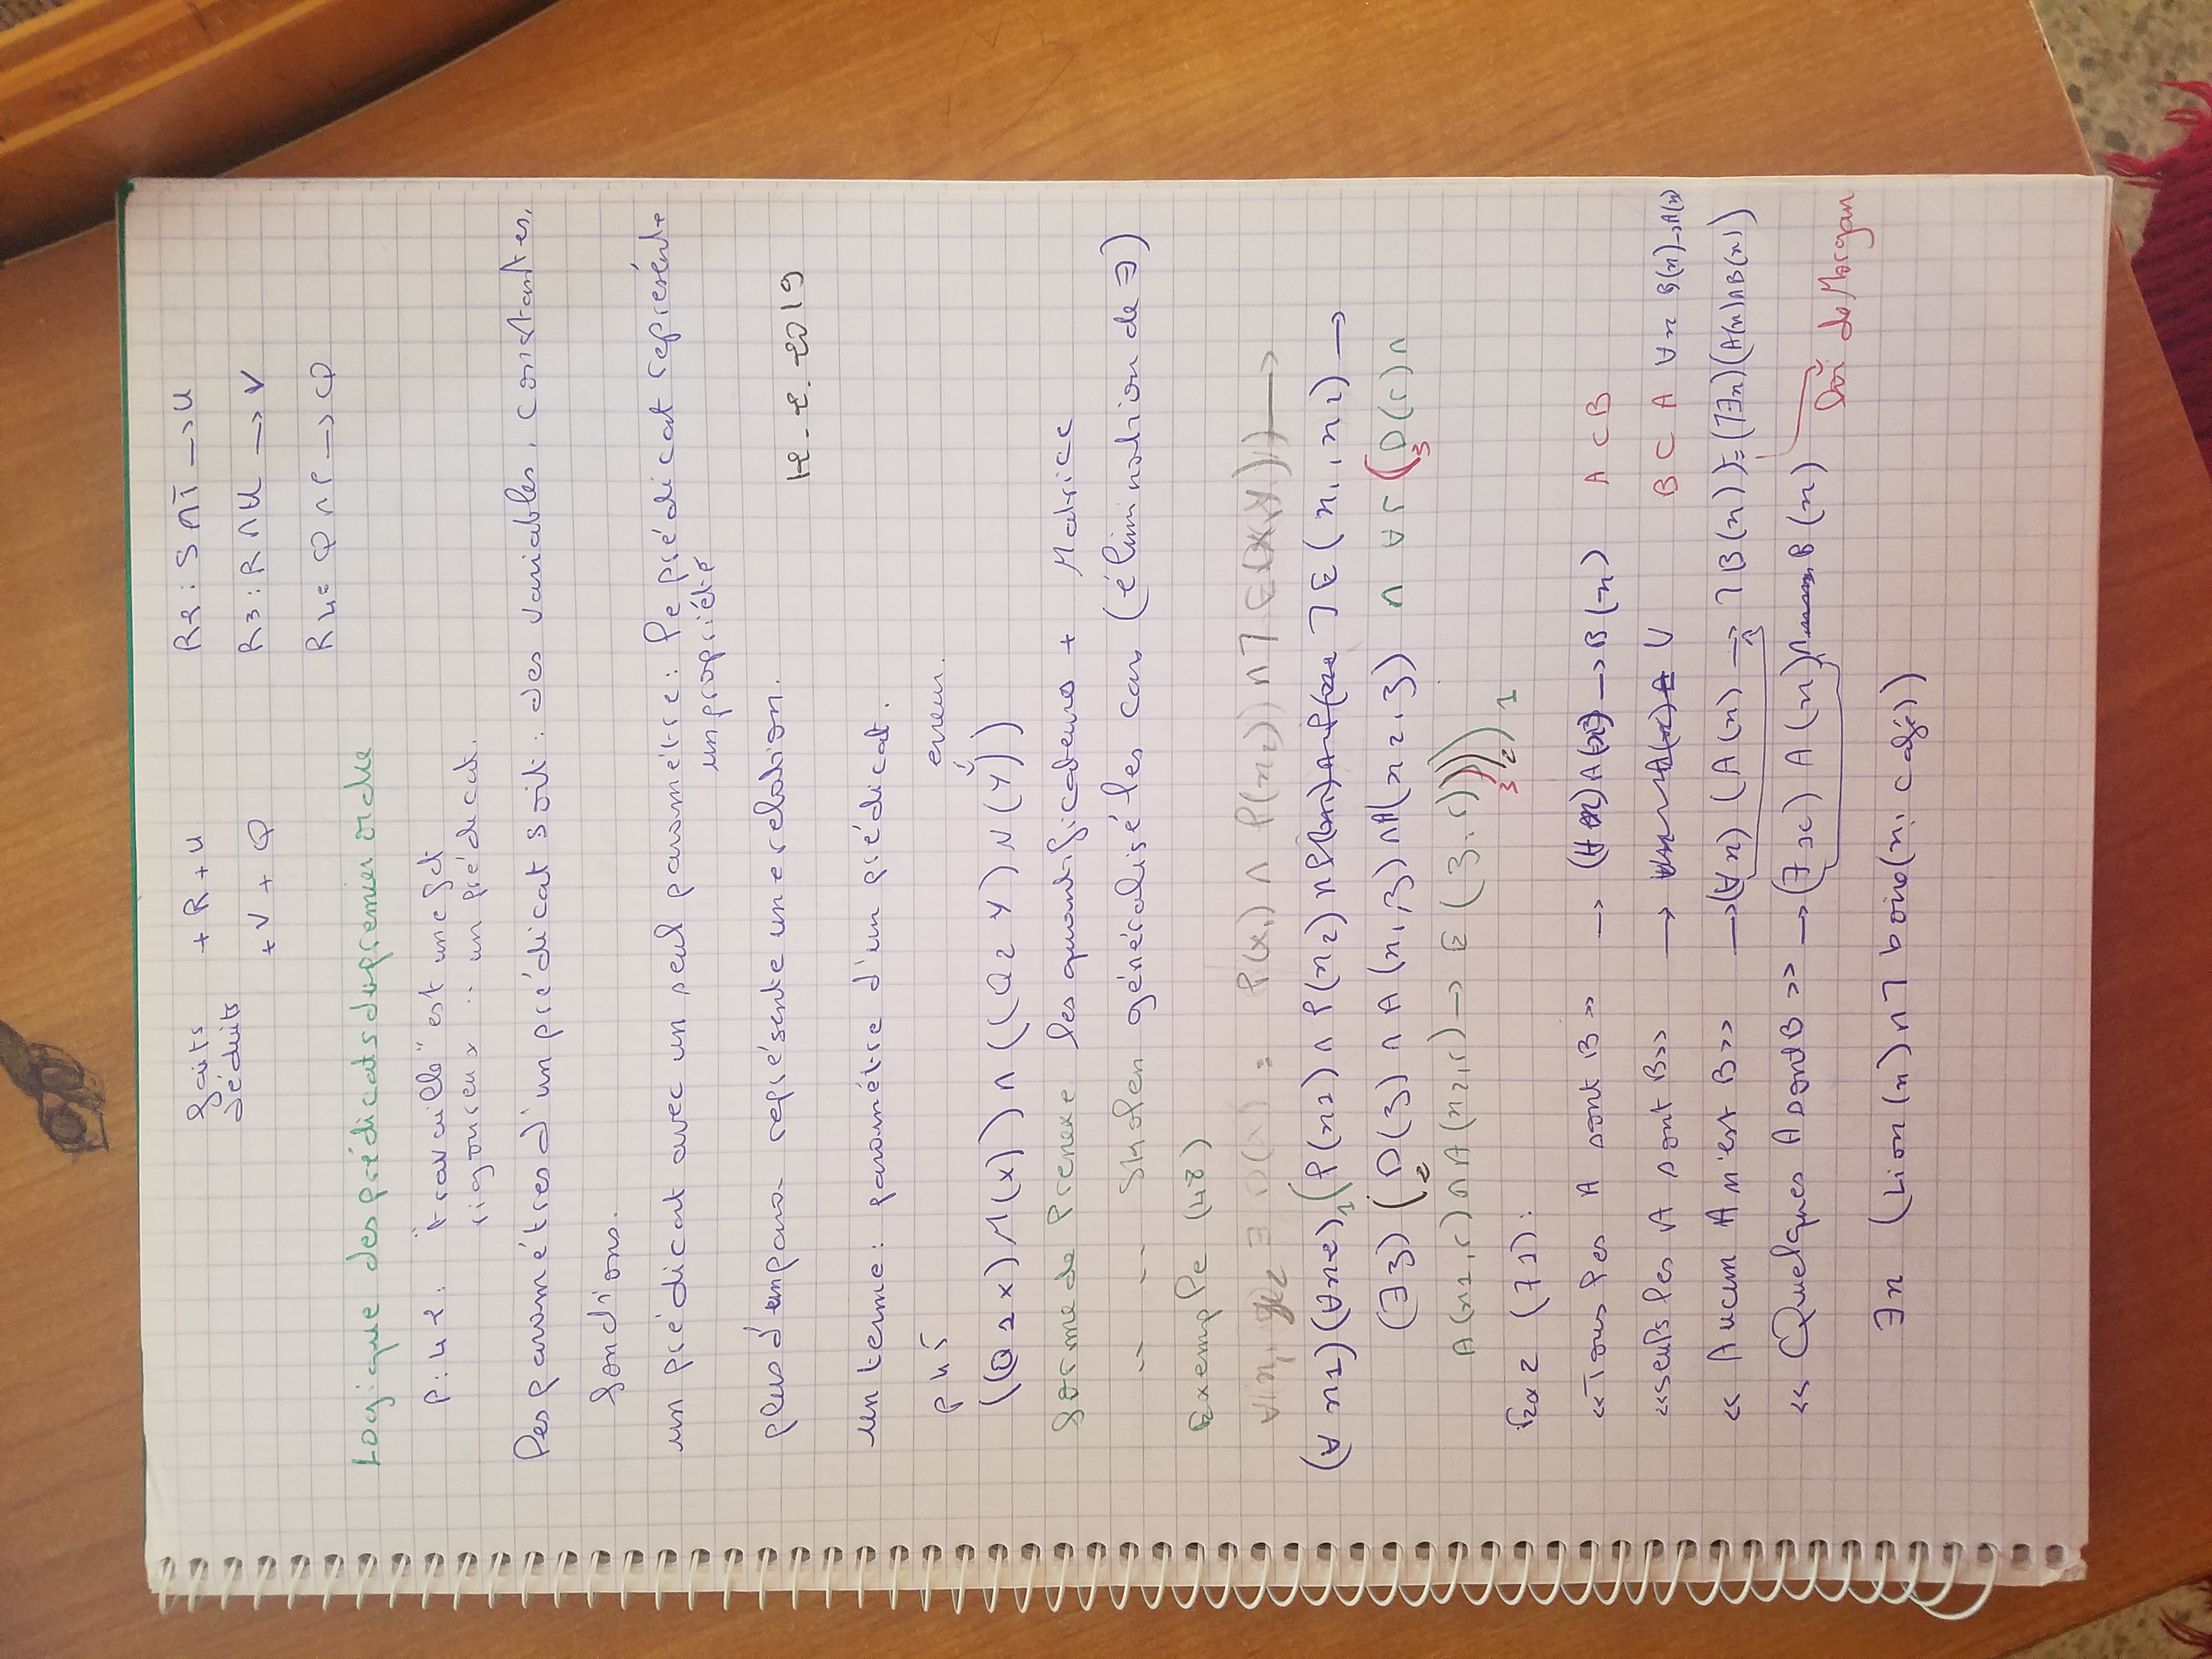 faits + R + U R2 : S ∧ T → U
déduits + V + Q R3 : R ∧ U → V
R4 = Q ∧ P → Q
Logique des prédicats du premier ordre
P: 42 : "travaille" est une fct
rigoureux :: un prédicat.
les paramétres d'un prédicat soit : des variables, constantes,
fonctions.
un prédicat avec un seul paramétre : le prédicat représente
un propriété
plus d'un para- représente une relation.
12-2-2019
un terme : paramétre d'un prédicat.
P 45 erreur
((Q1 x) M(x)) ∧ ((Q2 y) N(y))
forme de Prenexe les quantificateurs + Matrice
" " " Skolen généralisé les car (élimination de ∃)
Exemple (48)
P(x1) ∧ P(x2)) ∧ ¬E(x,y)) →
(∀ x1)(∀x2)1(P(x1) ∧ P(x2) ¬E(x1, x2) →
(∃ z) (2 D(z) ∧ A(x1, z) ∧ A(x2, z) ∧ ∀ r (3 D(r) ∧
A(x1,r) ∧ A(x2,r) → E(z, r)))) 3 2 1
Ex 2 (71) :
«Tous les A sont B» → (∀x) A(x) → B(x) A ⊂ B
«seuls les A sont B» → ∀ B ⊂ A ∀x B(x) → A(x)
« Aucun A n'est B» → (∀x) (A(x) → ¬B(x)) ≡ (¬∃x)(A(x) ∧ B(x))
« Quelques A sont B » → (∃x) A(x) ∧ B(x) loi de Morgan
∃x (Lion(x) ∧ ¬ boire(x, café))